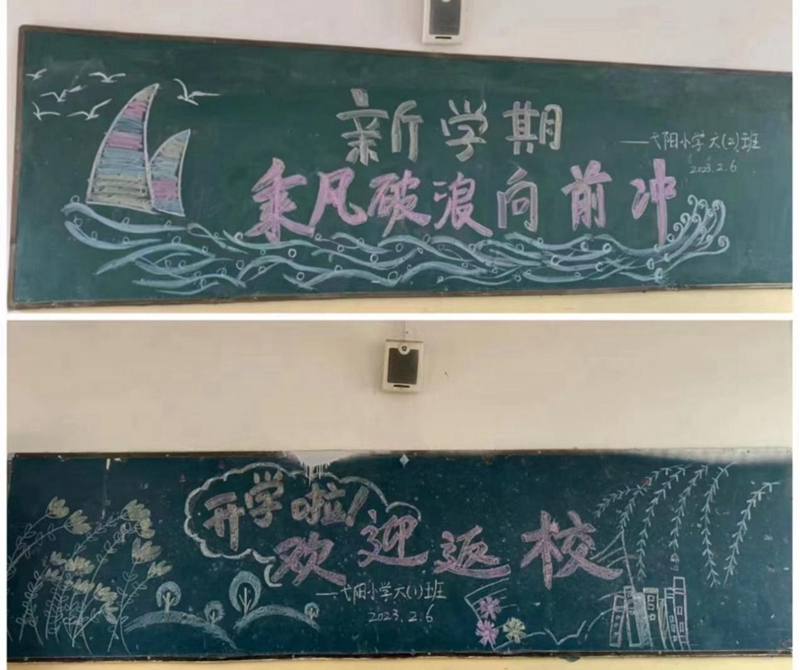 新学期
——弋阳小学六(二)班
2023.2.6
乘风破浪向前冲
开学啦!
欢迎返校
——弋阳小学六(1)班
2023.2.6